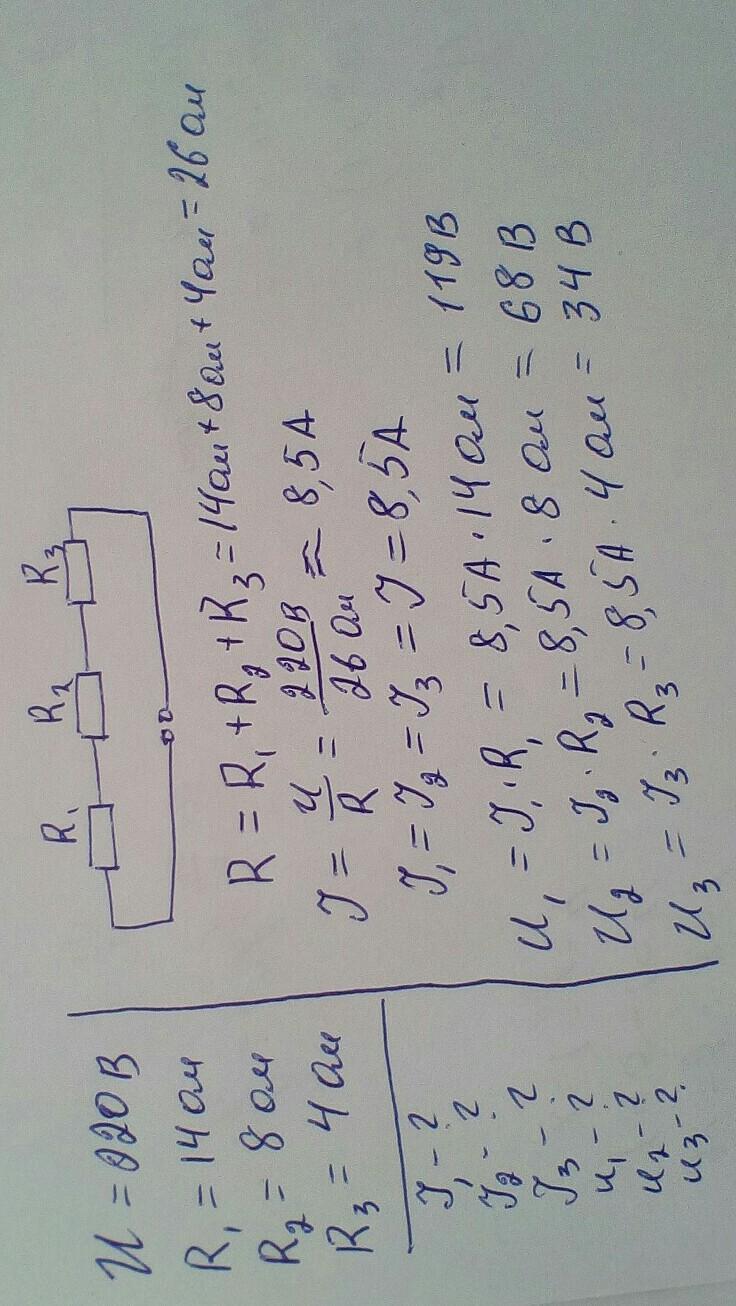 U = 220В
R₁ = 14 ом
R₂ = 8 ом
R₃ = 4 ом
J - ?
J₁ - ?
J₂ - ?
J₃ - ?
U₁ - ?
U₂ - ?
U₃ - ?
R₁ R₂ R₃
R = R₁ + R₂ + R₃ = 14ом + 8ом + 4ом = 26 ом
J = U/R = 220В/26 ом ≈ 8,5А
J₁ = J₂ = J₃ = J = 8,5А
U₁ = J₁ · R₁ = 8,5А · 14 ом = 119В
U₂ = J₂ · R₂ = 8,5А · 8 ом = 68 В
U₃ = J₃ · R₃ = 8,5А · 4 ом = 34 В